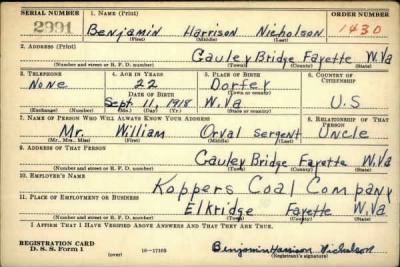 SERIAL NUMBER 1. NAME (Print) ORDER NUMBER
2991 Benjamin Harrison Nicholson 1430
(First) (Middle) (Last)
2. ADDRESS (Print)
Gauley Bridge Fayette W.Va
(Number and street or R. F. D. number) (Town) (County) (State)
3. TELEPHONE 4. AGE IN YEARS 5. PLACE OF BIRTH 6. COUNTRY OF CITIZENSHIP
None 22 Dorfey
DATE OF BIRTH (Town or county)
Sept. 11, 1918 W.Va U.S
(Exchange) (Number) (Mo.) (Day) (Yr.) (State or country)
7. NAME OF PERSON WHO WILL ALWAYS KNOW YOUR ADDRESS 8. RELATIONSHIP OF THAT PERSON
Mr. William Orval Sergent Uncle
(Mr., Mrs., Miss) (First) (Middle) (Last)
9. ADDRESS OF THAT PERSON
Gauley Bridge Fayette W.Va
(Number and street or R. F. D. number) (Town) (County) (State)
10. EMPLOYER'S NAME
Koppers Coal Company
11. PLACE OF EMPLOYMENT OR BUSINESS
Elkridge Fayette W.Va
(Number and street or R. F. D. number) (Town) (County) (State)
I AFFIRM THAT I HAVE VERIFIED ABOVE ANSWERS AND THAT THEY ARE TRUE.
REGISTRATION CARD
D. S. S. Form 1 (over) 16—17105 Benjamin Harrison Nicholson
(Registrant's signature)